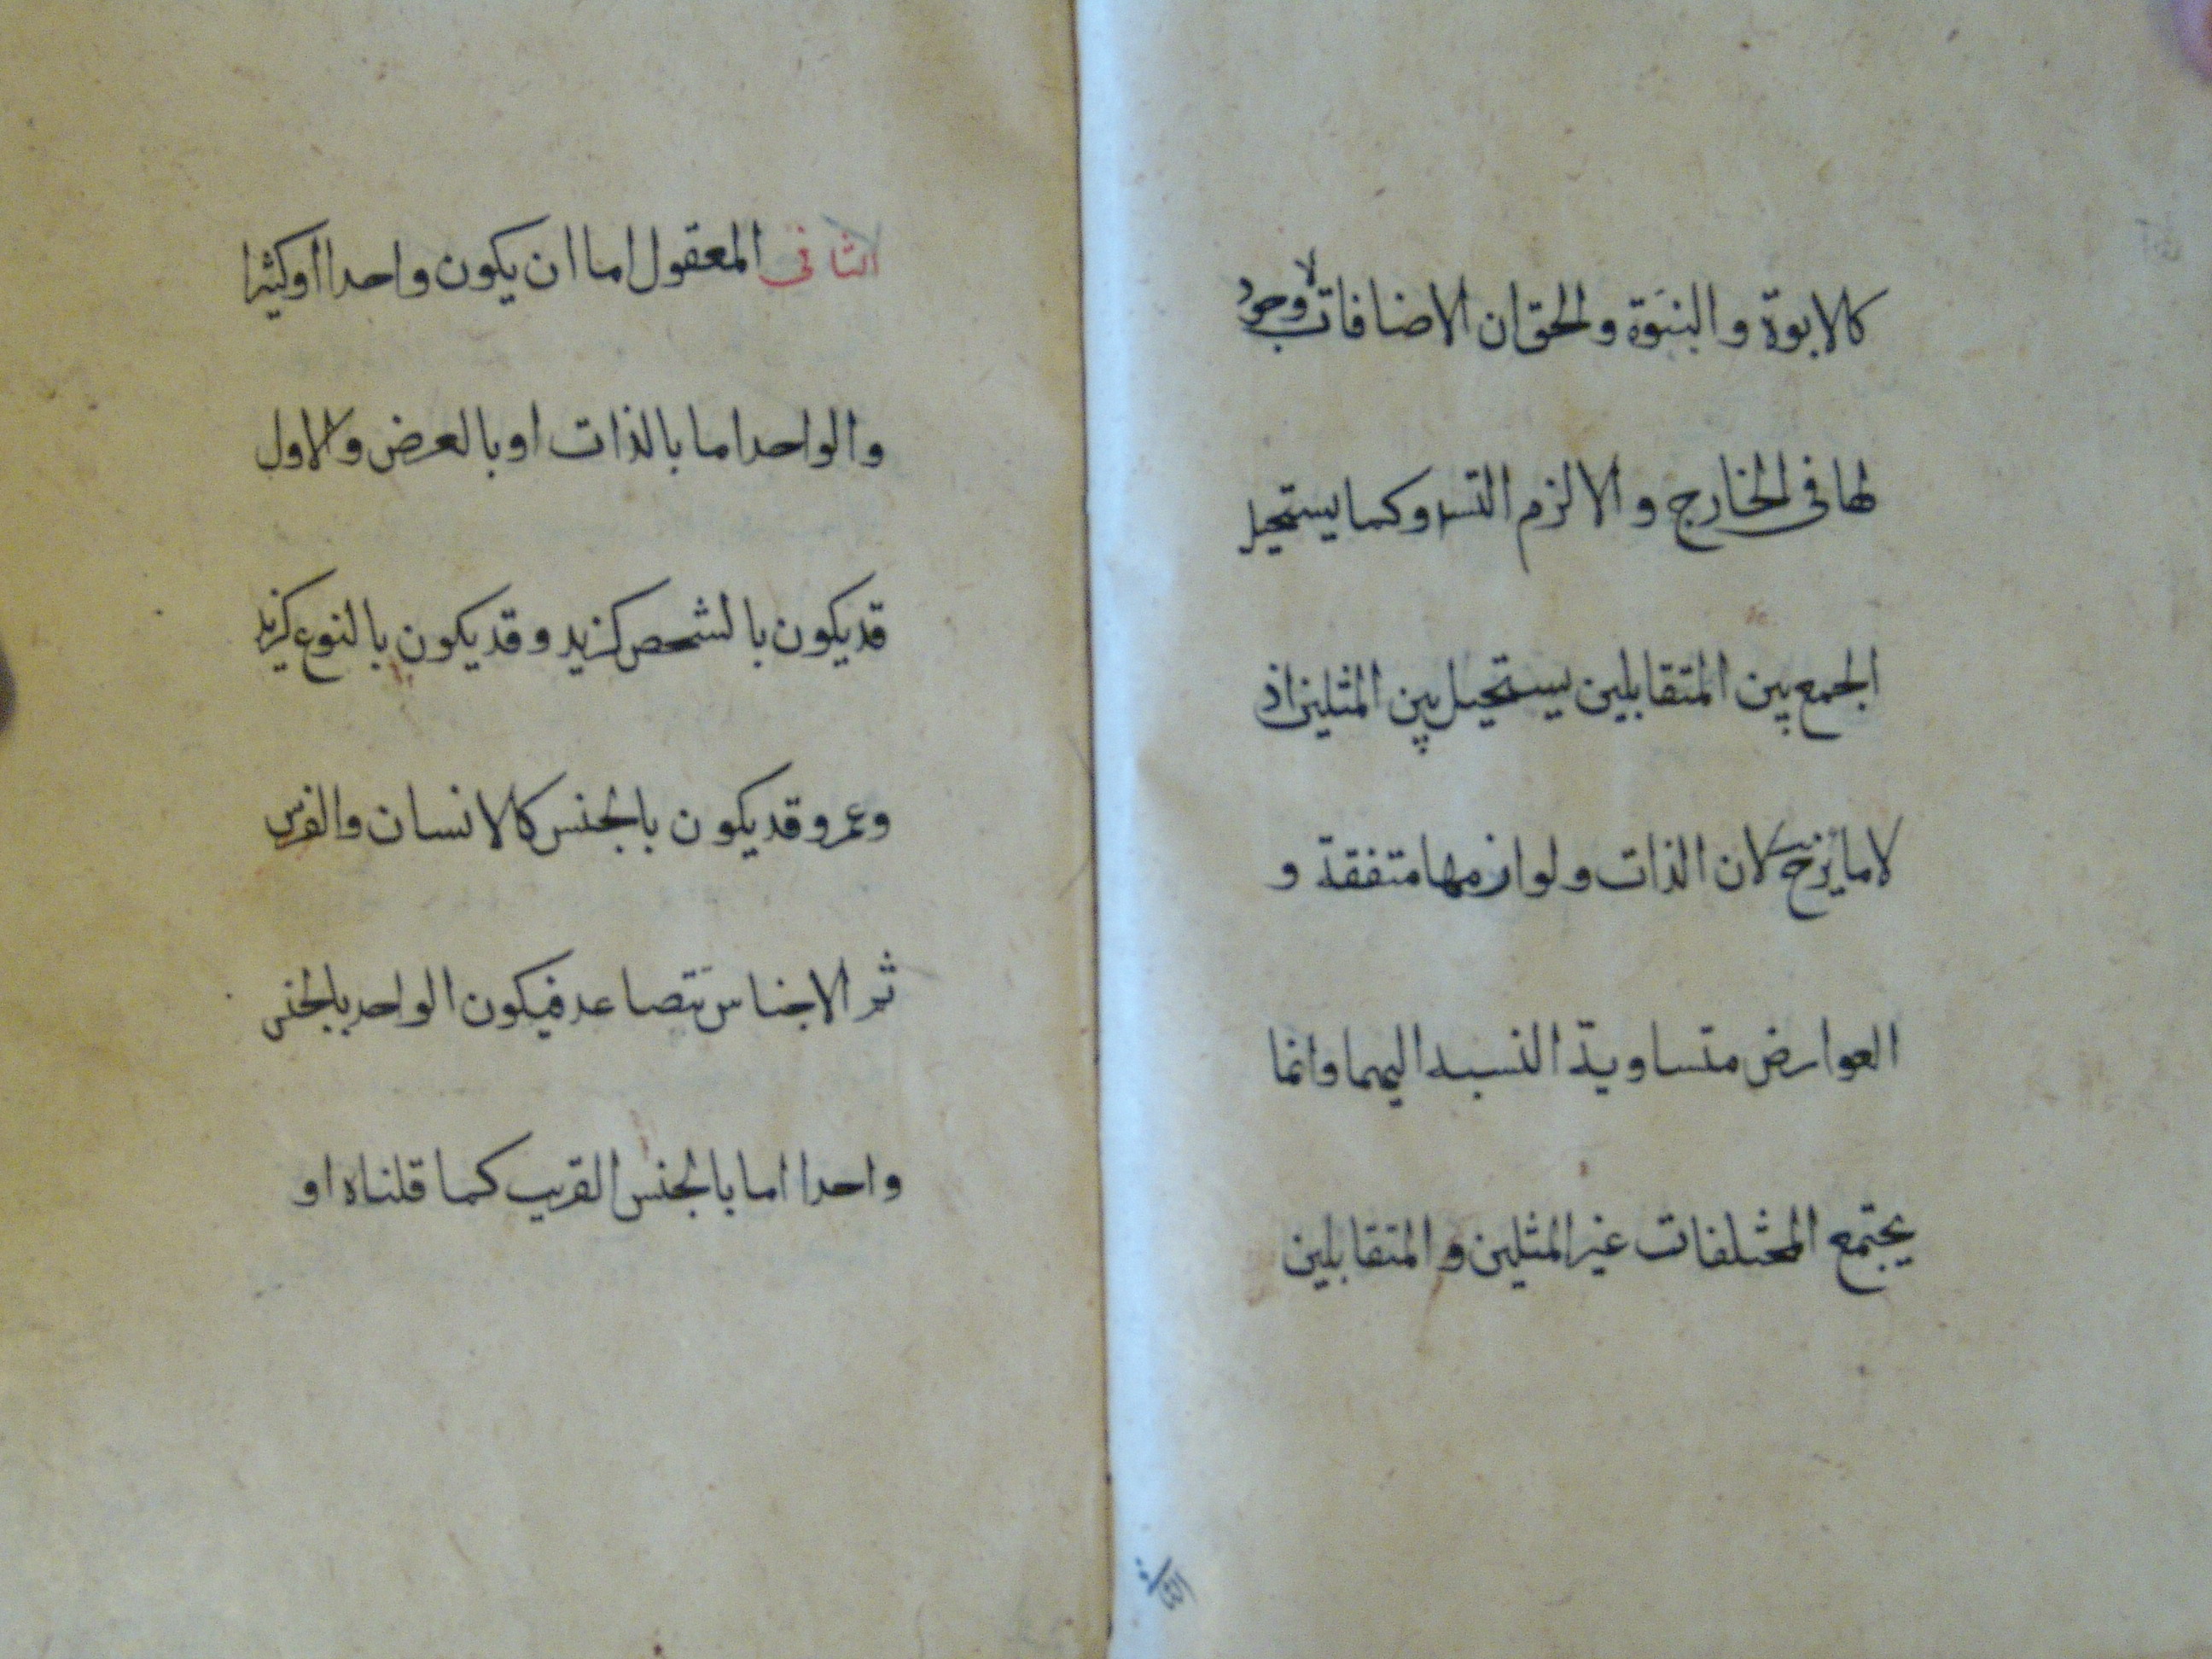 كالابوة و البنوة والحق ان الاضافات لا وجود
لها فى الخارج و الا لزم التسـ وكما يستحيل
الجمع بين المتقابلين يستحيل بين المثلين اذ
لا مايز ح لان الذات ولوازمها متفقة و
العوارض متساوية النسبة اليهما وانما
يجتمع المختلفات غير المثلين و المتقابلين
الثانى المعقول اما ان يكون واحدا أو كثيرا
والواحد اما بالذات او بالعرض والاول
قد يكون بالشخص كزيد وقد يكون بالنوع كزيد
وعمرو وقد يكون بالجنس كالانسان والفرس
ثم الاجناس تتصاعد فيكون الواحد بالجنس
واحدا اما بالجنس القريب كما قلناه او